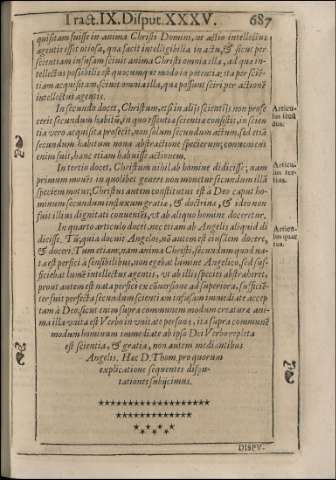 Tract. IX. Disput. XXXV. 687
quisitam fuisse in anima Christi Domini, ne actio intellectus
agentis esset otiosa, qua facit intelligibilia in actu, & sicut per
scientiam infusam scivit anima Christi omnia illa, ad quæ in-
tellectus possibilis est quocumque modo in potentia; ita per sciē-
tiam acquisitam scivit omnia illa, quæ possunt sciri per actionē
intellectus agentis.
In secundo docet, Christum, etsi in alijs scientijs non profe-
cerit secundum habitū, in quo essentia scientiæ consistit, in scien-
tia vero acquisita profecit, non solum secundum actum, sed etiā
secundum habitum nova abstractione specierum; conveniens
enim fuit, hanc etiam habuisse actionem.
In tertio docet, Christum nihil ab homine didicisse; nam
primum movēs in quolibet genere non movetur secundum illā
speciem motus; Christus autem constitutus est à Deo caput ho-
minum secundum influxum gratiæ, & doctrinæ, & ideo non
fuit illius dignitati conveniēs, ut ab aliquo homine doceretur.
In quarto articulo docet, nec etiam ab Angelis aliquid di-
dicisse. Tū, quia docuit Angelos, nō autem est eiusdem docere,
& doceri. Tum etiam, nam anima Christi, secundum quod na-
ta est perfici à sensibilibus, non egebat lumine Angelico, sed suf-
ficiebat lumē intellectus agentis, ut ab illis species abstraheret,
prout autem est nata perfici ex cōversione ad superiora, sufficiē-
ter fuit perfecta secundum scientiam infusam immediate accep-
tam à Deo, sicut enim supra communem modum creaturæ ani-
ma illa unita est Verbo in unitate personæ, ita supra communē
modum hominum immediate ab ipso Dei Verbo repleta
est scientia, & gratia, non autem mediantibus
Angelis. Hæc D. Thom. pro quorum
explicatione sequentes dispu-
tationes subijcimus.
Articu-
lus secū
dus.
Articu-
lus ter-
tius.
Articu-
lus quar
tus.
DISPV-